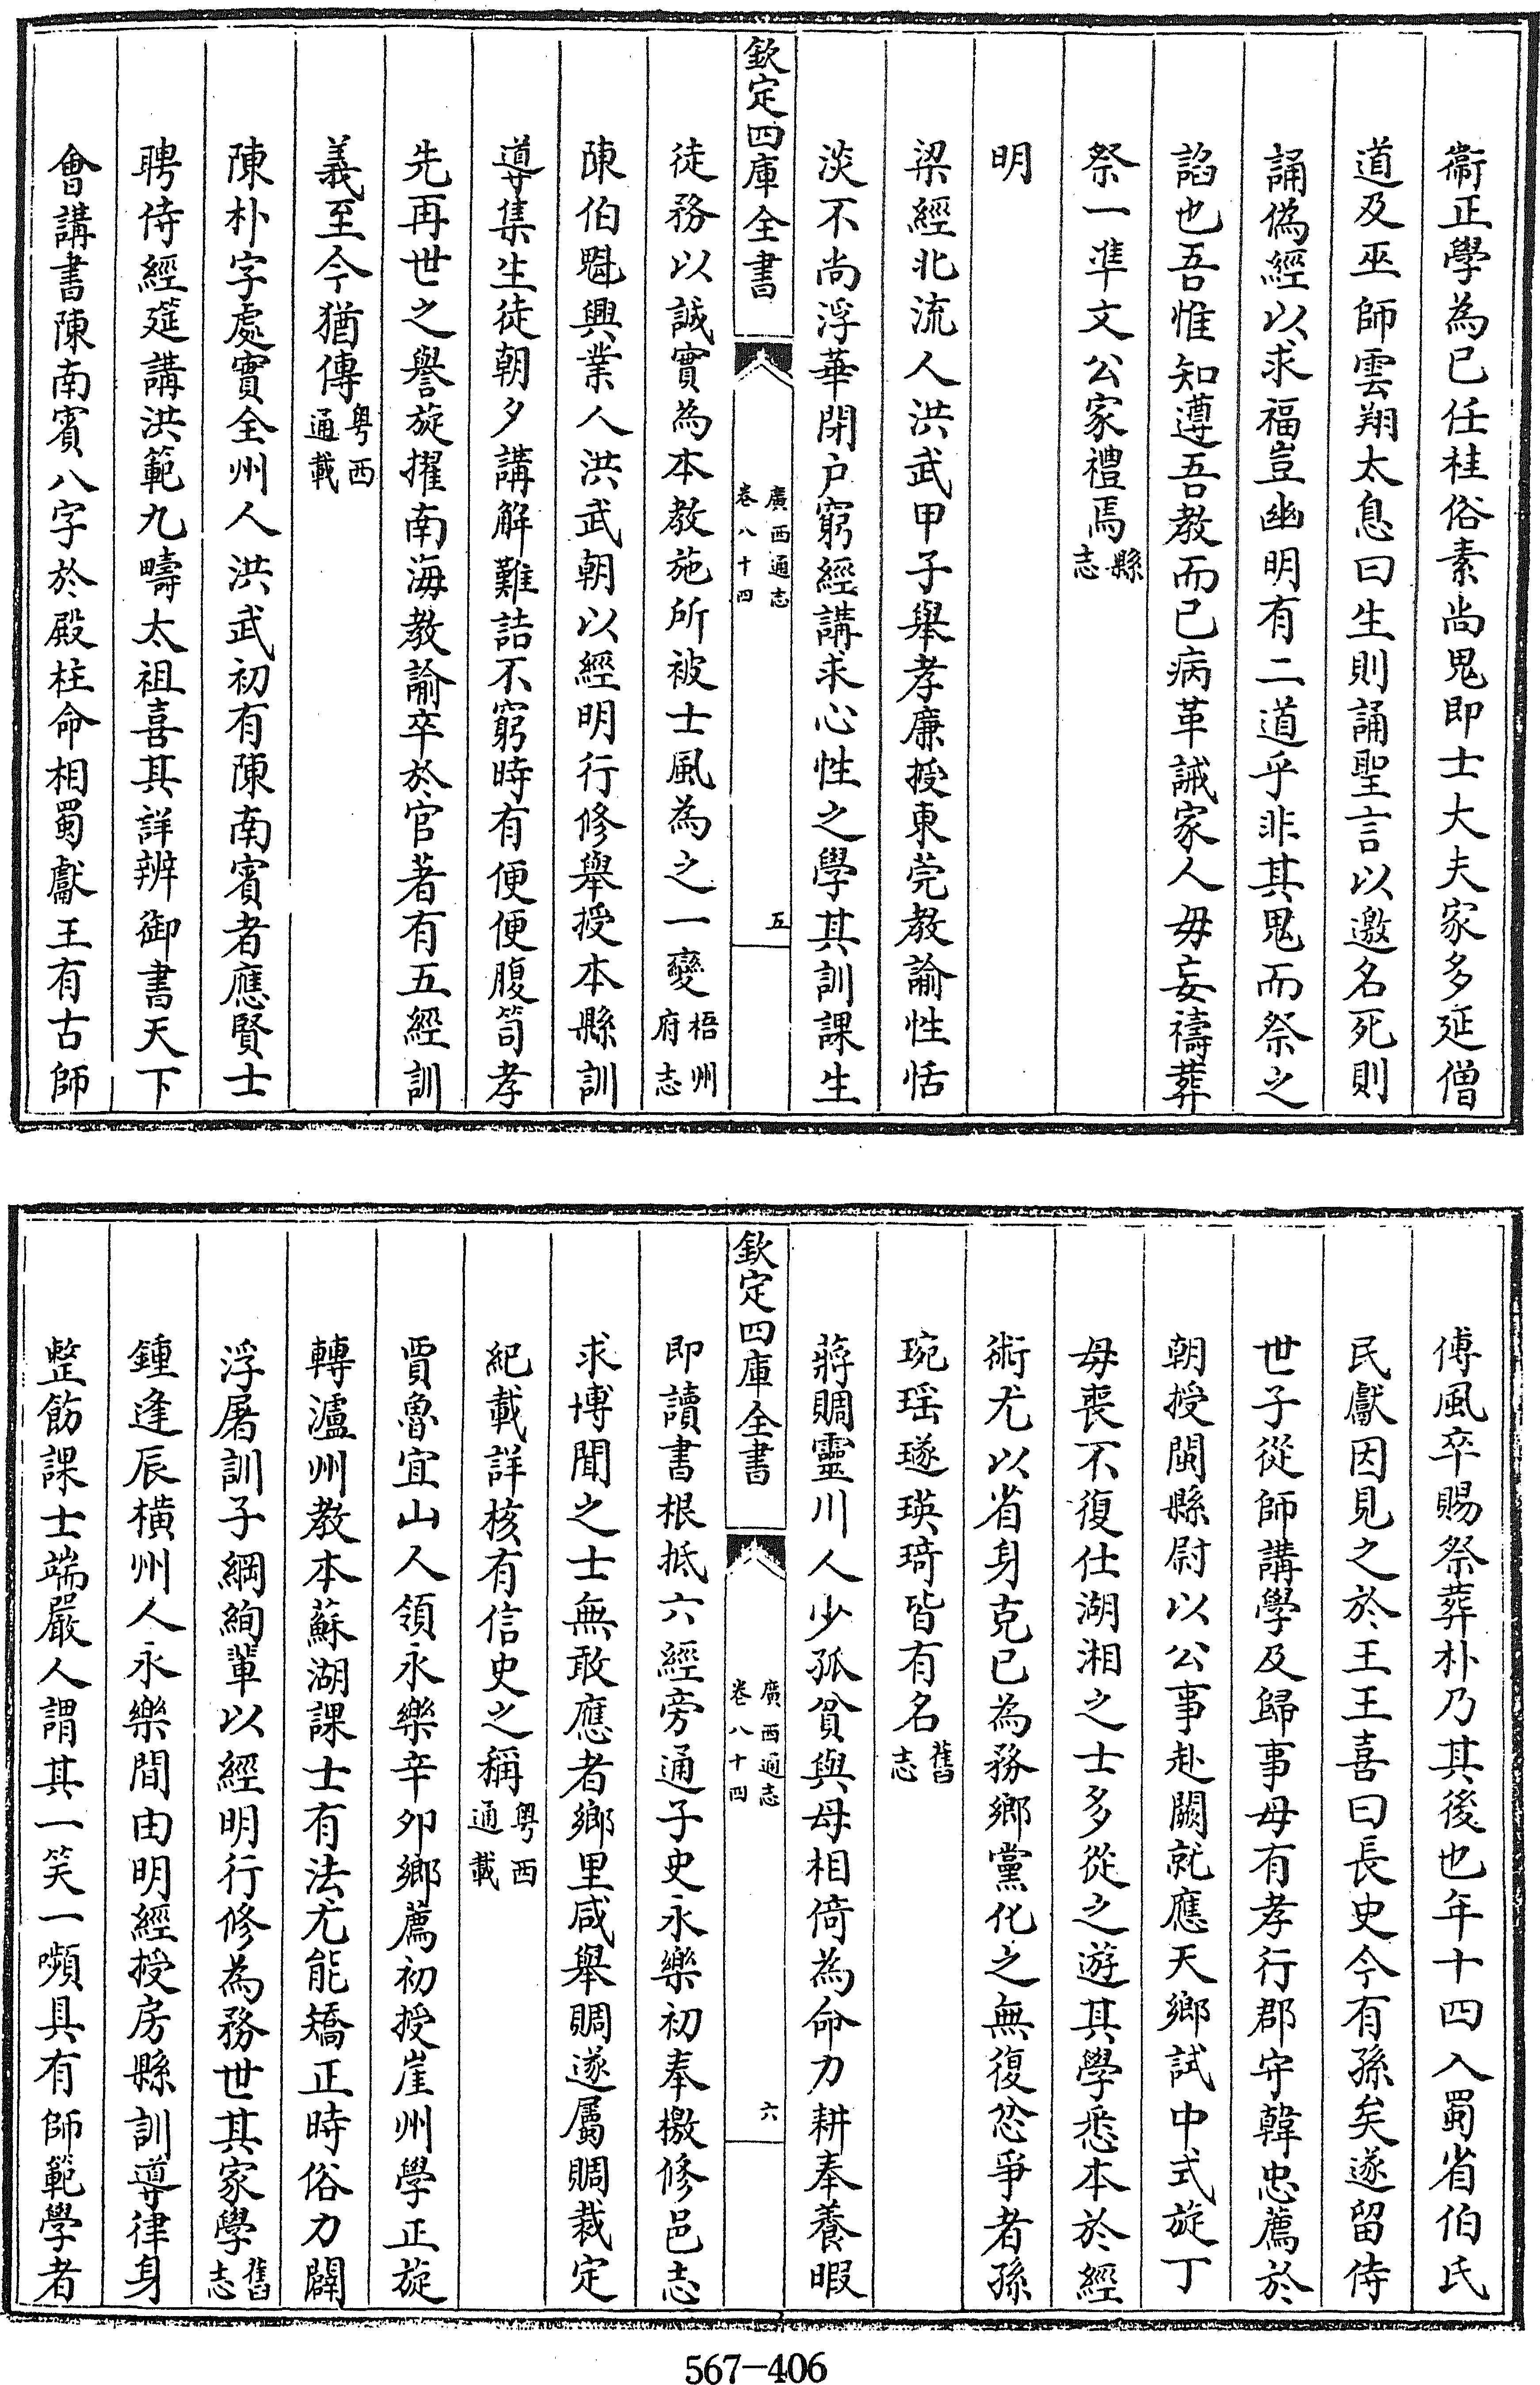 衞正學為已任桂俗素尚鬼即士大夫家多延僧
道及巫師雲翔太息曰生則誦聖言以邀名死則
誦偽經以求福豈幽明有二道乎非其鬼而祭之
諂也吾惟知遵吾教而已病革誡家人毋妄禱葬
祭一準文公家禮焉縣志
明
梁經北流人洪武甲子舉孝廉授東莞教諭性恬
淡不尚浮華閉户窮經講求心性之學其訓課生
欽定四庫全書
廣西通志
卷八十四
五
徒務以誠實為本教施所被士風為之一變梧州府志
陳伯魁興業人洪武朝以經明行修舉授本縣訓
導集生徒朝夕講解難詰不窮時有便便腹笥孝
先再世之譽旋擢南海教諭卒於官著有五經訓
義至今猶傳粤西通載
陳朴字處實全州人洪武初有陳南賓者應賢士
聘侍經筵講洪範九疇太祖喜其詳辨御書天下
會講書陳南賓八字於殿柱命相蜀獻王有古師
傅風卒賜祭葬朴乃其後也年十四入蜀省伯氏
民獻因見之於王王喜曰長史今有孫矣遂留侍
世子從師講學及歸事母有孝行郡守韓忠薦於
朝授閩縣尉以公事赴闕就應天鄉試中式旋丁
母喪不復仕湖湘之士多從之遊其學悉本於經
術尤以省身克已為務鄉黨化之無復忿爭者孫
琬瑶璲瑛琦皆有名舊志
蔣賙靈川人少孤貧與母相倚為命力耕奉養暇
欽定四庫全書
廣西通志
卷八十四
六
即讀書根抵六經旁通子史永樂初奉檄修邑志
求博聞之士無敢應者鄉里咸舉賙遂屬賙裁定
紀載詳核有信史之稱粤西通載
賈魯宜山人領永樂辛卯鄉薦初授崖州學正旋
轉瀘州教本蘇湖課士有法尤能矯正時俗力闢
浮屠訓子綱絢輩以經明行修為務世其家學舊志
鍾逢辰橫州人永樂間由明經授房縣訓導律身
整飭課士端嚴人謂其一笑一嚬具有師範學者
567-406